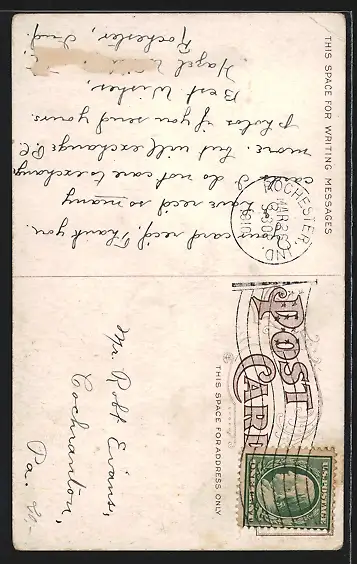 THIS SPACE FOR WRITING MESSAGES
Your card rec'd. Thank you.
have rec'd so many
cards I do not care to exchange
more. but will exchange P.C.
Photos if you send yours.
Best Wishes,
Hazel
Rochester, Ind.
ROCHESTER, IND.
MAR 26
9-30
1910
POST
CARD
THIS SPACE FOR ADDRESS ONLY
U.S. POSTAGE
ONE CENT
Mr. Robt Evans,
Cochranton,
Pa.